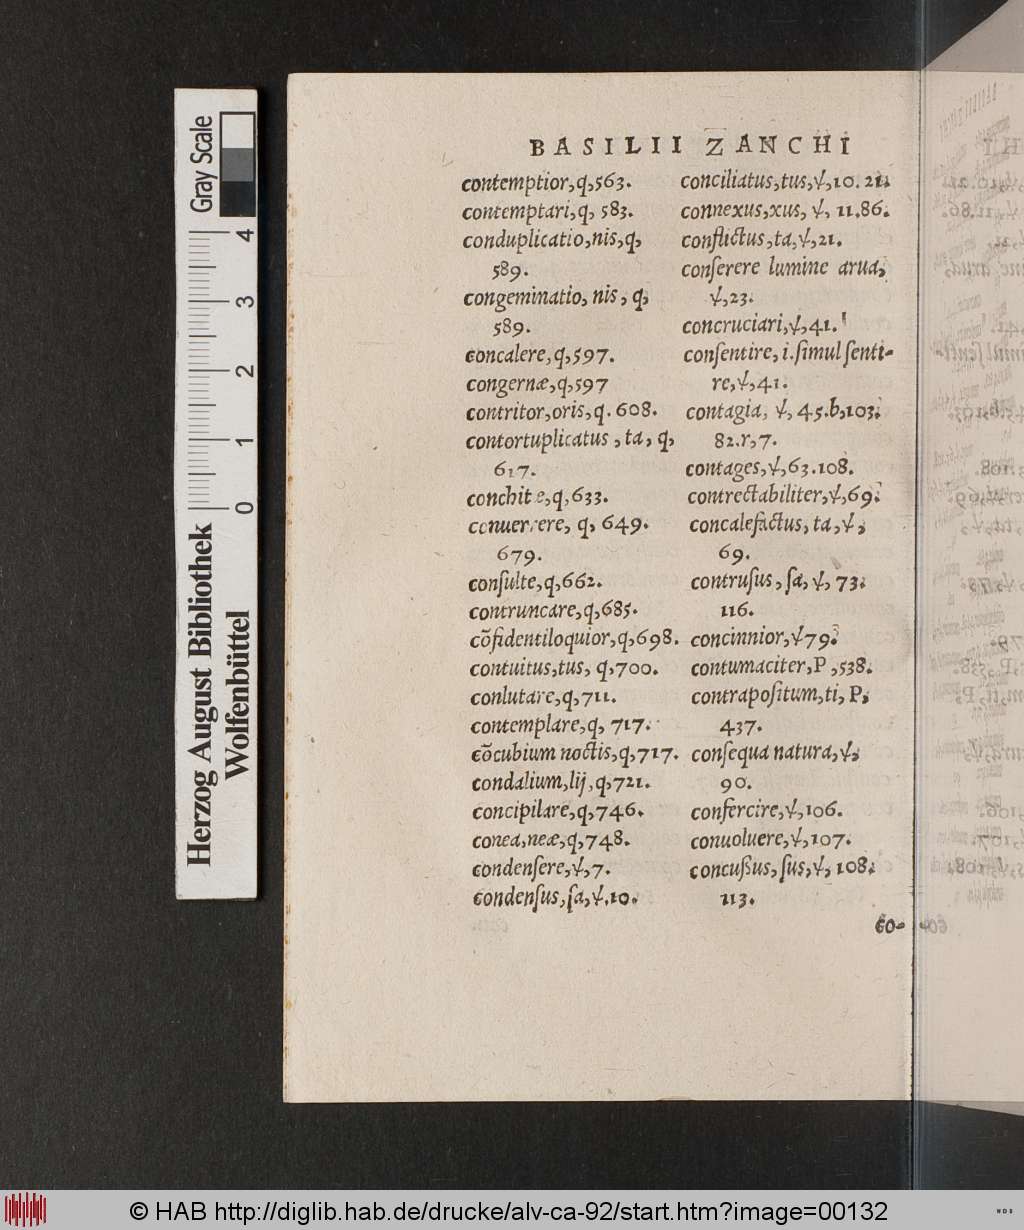 BASILII ZANCHI
contemptior,q,563.
contemptari,q, 583.
conduplicatio,nis,q,
589.
congeminatio, nis, q,
589.
concalere,q,597.
congernæ,q,597
contritor,oris,q. 608.
contortuplicatus, ta, q,
617.
conchite,q,633.
q, 649.
679.
conſulte,q,662.
contruncare,q,685.
cõfidentiloquior,q,698.
contuitus,tus, q,700.
conlutare,q,711.
contemplare,q, 717.
cõcubium noctis,q,717.
condalium,lij,q,721.
concipilare,q,746.
conea,neæ,q,748.
condenſere,ψ,7.
condenſus,ſa,ψ.10.
conciliatus,tus,ψ,10. 21.
connexus,xus, ψ, 11.86.
conflictus,ta,ψ,21.
conſerere lumine arua,
ψ,23.
concruciari,ψ,41.
conſentire, i.ſimul ſenti-
re,ψ,41.
contagia, ψ, 45.b,103.
82.r,7.
contages,ψ,63.108.
contrectabiliter,ψ,69.
concalefactus, ta,ψ,
69.
contruſus, ſa, ψ, 73.
116.
concinnior,ψ79.
contumaciter,P,538.
contrapoſitum,ti, P,
437.
conſequa natura,ψ,
90.
confercire,ψ,106.
conuoluere,ψ,107.
concußus, ſus,ψ, 108.
113.
co-
Gray Scale
4
3
2
1
0
Herzog August Bibliothek
Wolfenbüttel
© HAB http://diglib.hab.de/drucke/alv-ca-92/start.htm?image=00132